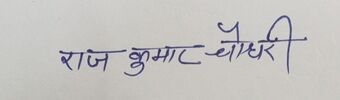 राज कुमार चौधरी